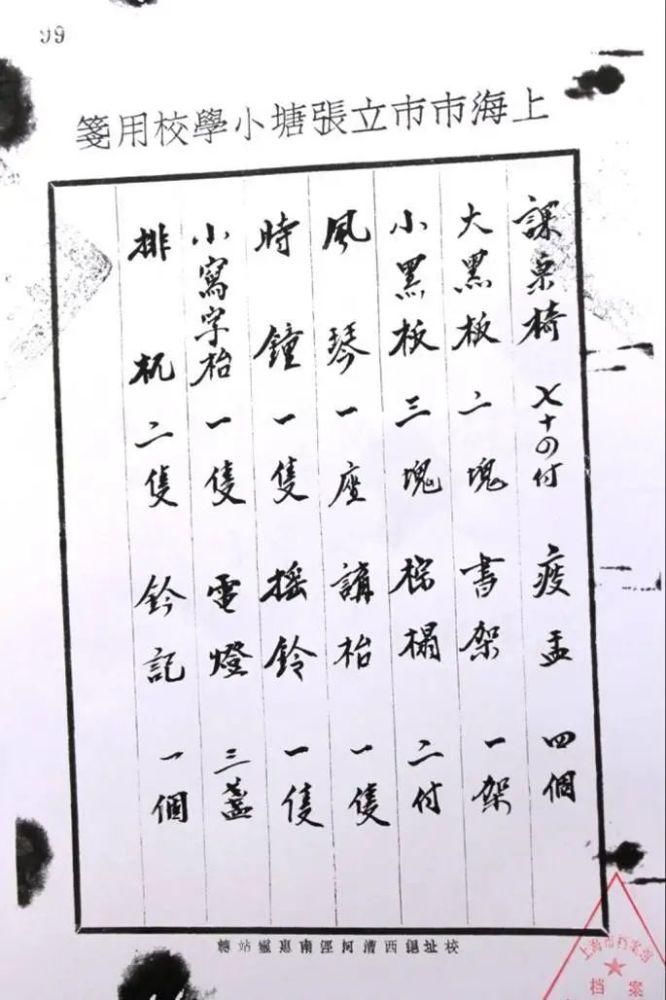 上海市市立張塘小學校用箋
課桌椅 七十四付 疲盂 四個
大黑板 二塊 書架 一架
小黑板 三塊 棕榻 二付
風琴 一座 講枱 一隻
時鐘 一隻 搖鈴 一隻
小寫字枱 一隻 電燈 三盞
排杌 二隻 鈐記 一個
校址滬西漕河涇南惠靈站轉
上海市档案馆
档案